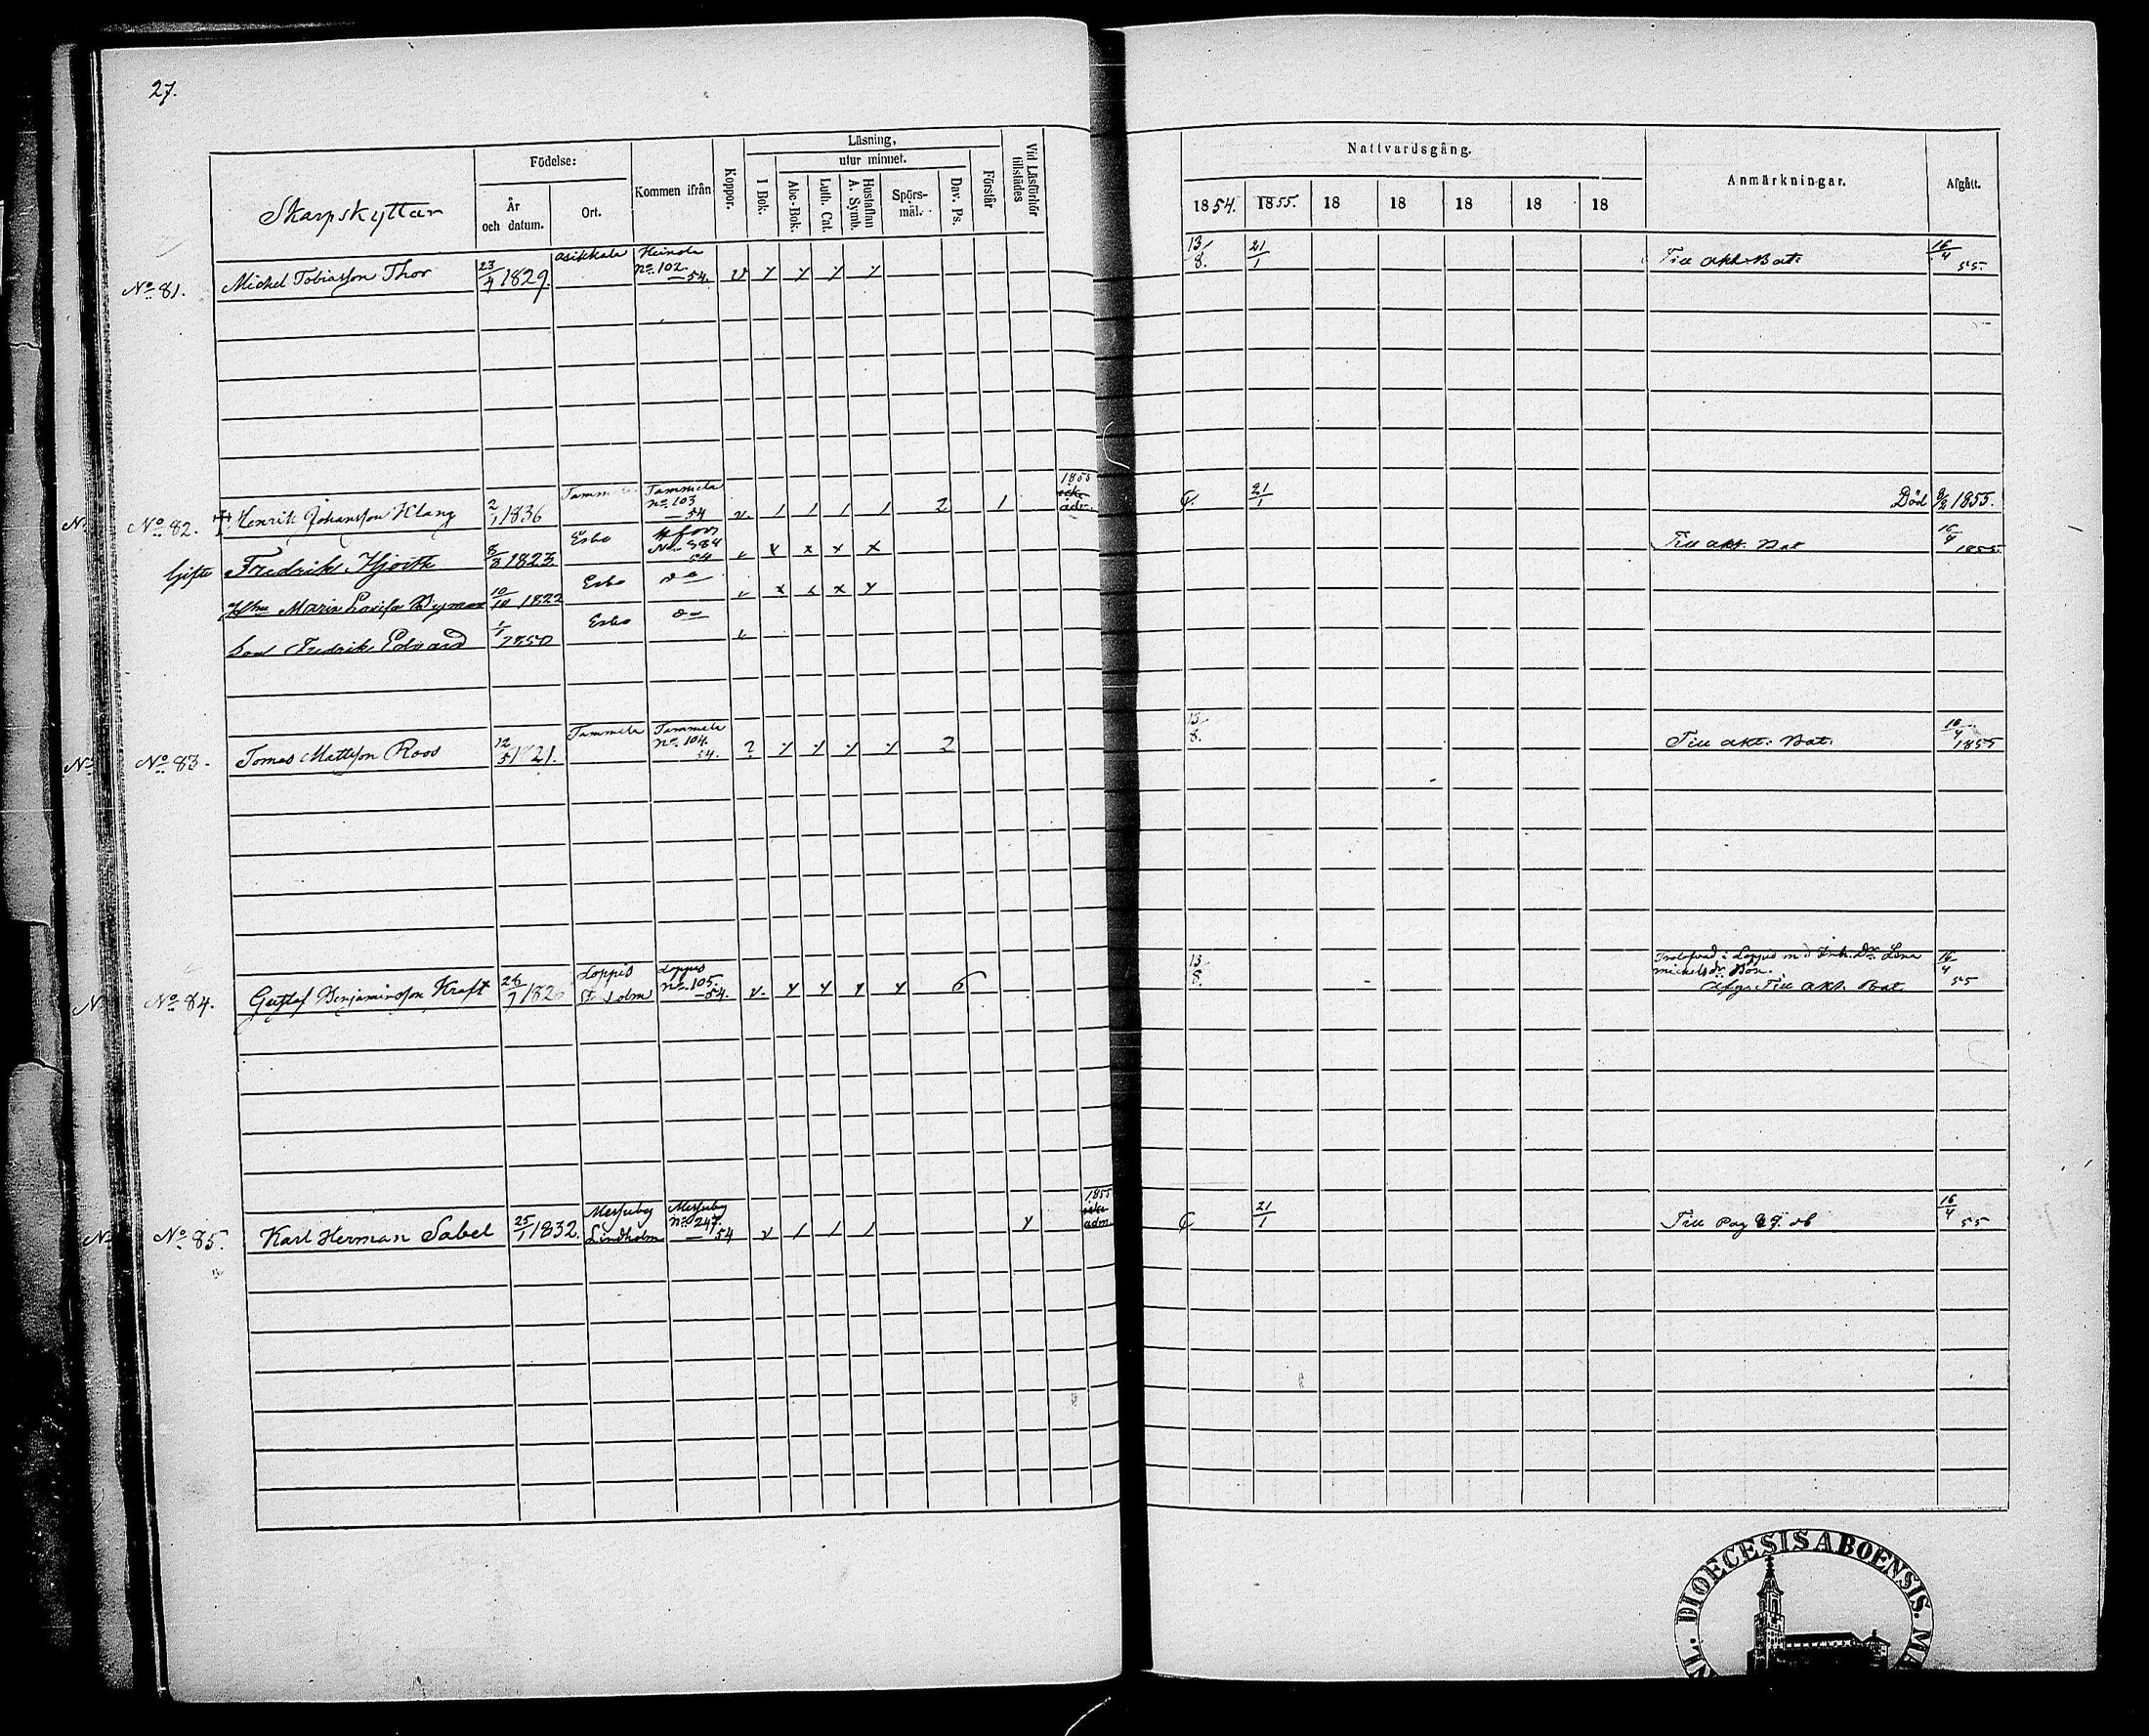 27.
Skarpskyttar
Födelse:
År
och datum.
Ort.
Kommen ifrån
Koppor.
Läsning,
I Bok.
utur minnet.
Abc-Bok.
Luth. Cat.
Hustaflan
A. Symb.
Spörs-
mål.
Dav. Ps.
Förstår
Vid Läsförhör
tillstädes
Nattvardsgång.
1854.
1855.
18
18
18
18
18
Anmärkningar.
Afgått.
No 81.
Michel Tobiasson Thor
23/4 1829.
Asikkala
Heinola
No 102.
—54.
v y y y y
13/8.
21/1
Till akt. Bat.
16/4
55.
No 82.
Henrik Johansson Klang
2/1 1836
Tammela
Tammela
No 103
—54
v. 1 1 1 1 2 1
1855
adm.
21/1
Död 8/2 1855.
Gifte
Fredrik Hjorth
8/8 1823
Esbo
H fors
54
v x x x
Till akt. Bat
16/4 1855.
Maria Lovisa
10/10 1822
Esbo
do
Son Fredrik Edvard
1/1 1850
Esbo
do
No 83.
Tomas Mattsson Roos
12/5 1821.
Tammela
Tammela
No 104.
54.
2 y y y y 2
13/8.
Till akt: Bat.
16/4
1855
No 84.
Gustaf Benjaminsson Kraft
26/7
Loppis
Loppis
No 105.
—54.
v. y y y y 6
13/8.
Trolofvad i Loppis Lena
Michelsdr
Afg. Till akt. Bat.
16/4
55
No 85.
Karl Herman Sabel
25/1 1832.
Messuby
Lindholm
Messuby
No 247.
—54
v 1 1 1 y
1855
adm
21/1
Till Pag
16/4
55
DIOECESIS ABOENSIS.